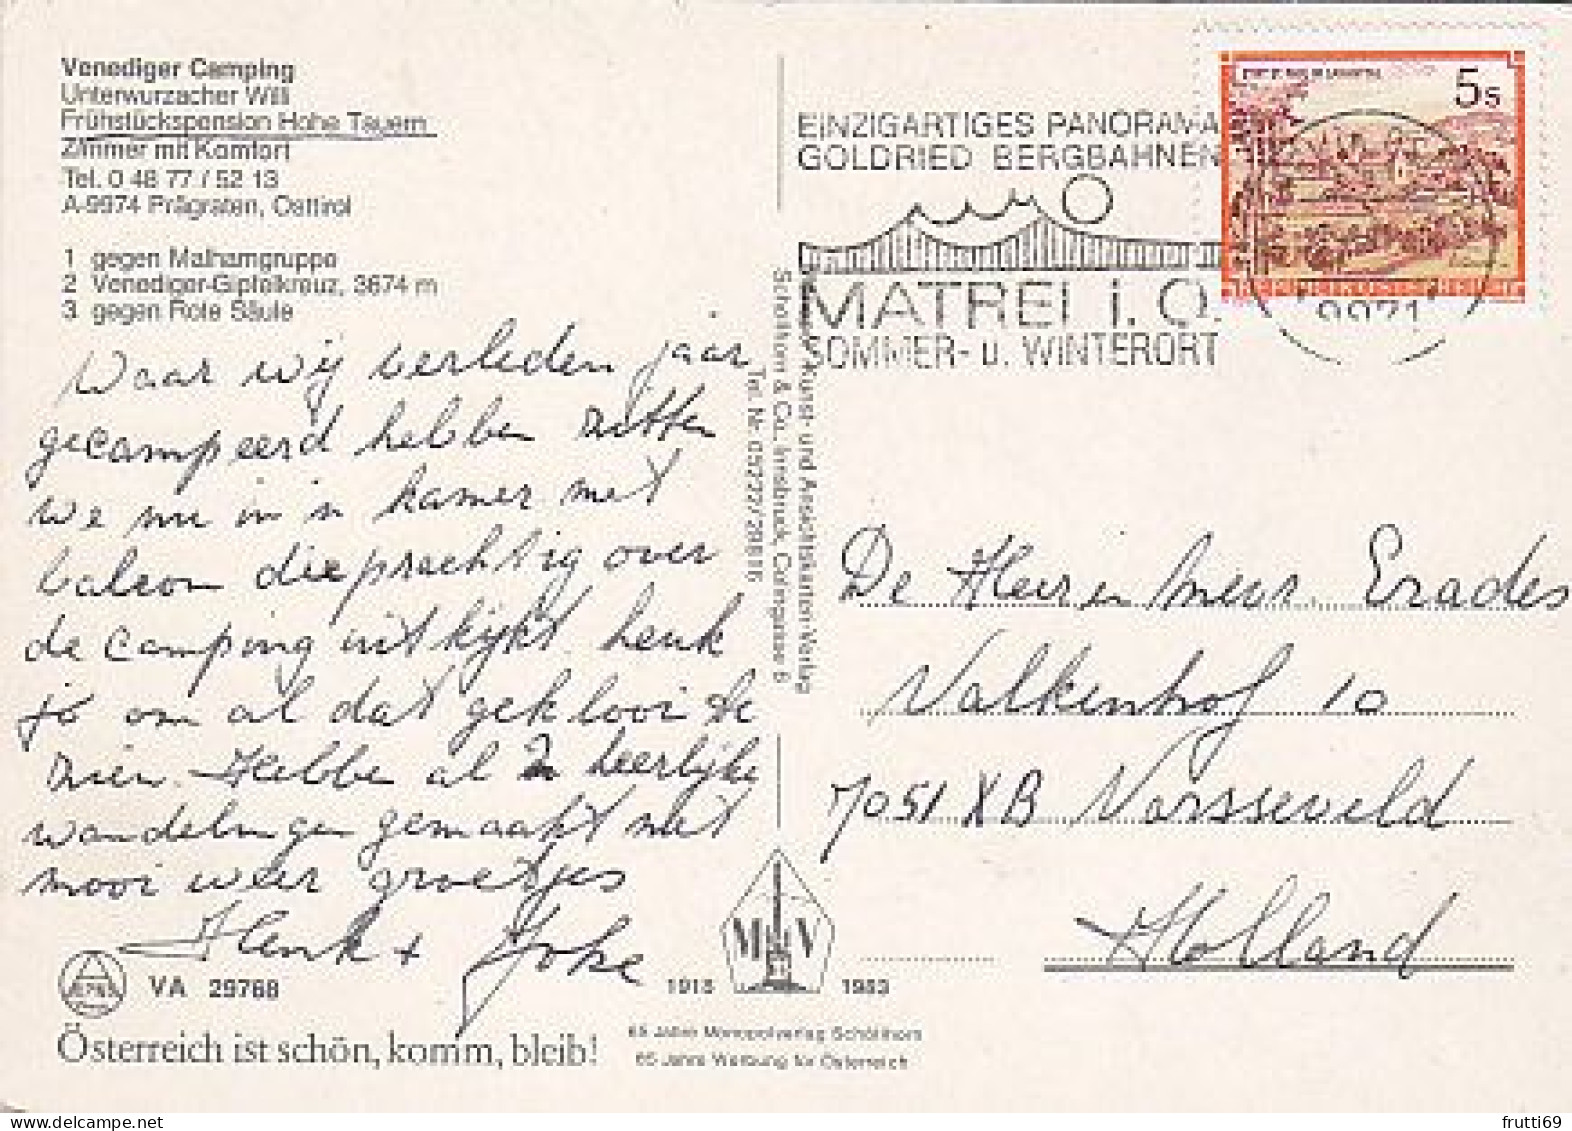 Venediger Camping
Unterwurzacher Willi
Frühstückspension Hohe Tauern
Zimmer mit Komfort
Tel. 0 48 77 / 52 13
A-9974 Prägraten, Osttirol
1 gegen Malhamgruppe
2 Venediger-Gipfelkreuz, 3674 m
3 gegen Rote Säule
Waar wij verleden jaar
gecampeerd hebben zitten
we nu in 'n kamer met
balcon die prachtig over
de camping uitkijkt. henk
om al dat geklooi te
zien. Hebbe al 2 heerlijke
wandelingen gemaakt met
mooi weer groetjes
Henk +
VA 29768
Österreich ist schön, komm, bleib!
Kunst- und Ansichtskarten-Verlag
Schöllhorn & Co., Innsbruck,
Tel. Nr. 05222/
M V
1918 1983
65 Jahre Monopolverlag Schöllhorn
65 Jahre Werbung für Österreich
EINZIGARTIGES PANORAMA
GOLDRIED BERGBAHNEN
MATREI i. O.
SOMMER- u. WINTERORT
5s
REPUBLIK ÖSTERREICH
9971
De Heer en Mevr. Erades
Valkenhof 10
7051 XB Varsseveld
Holland
frutti69